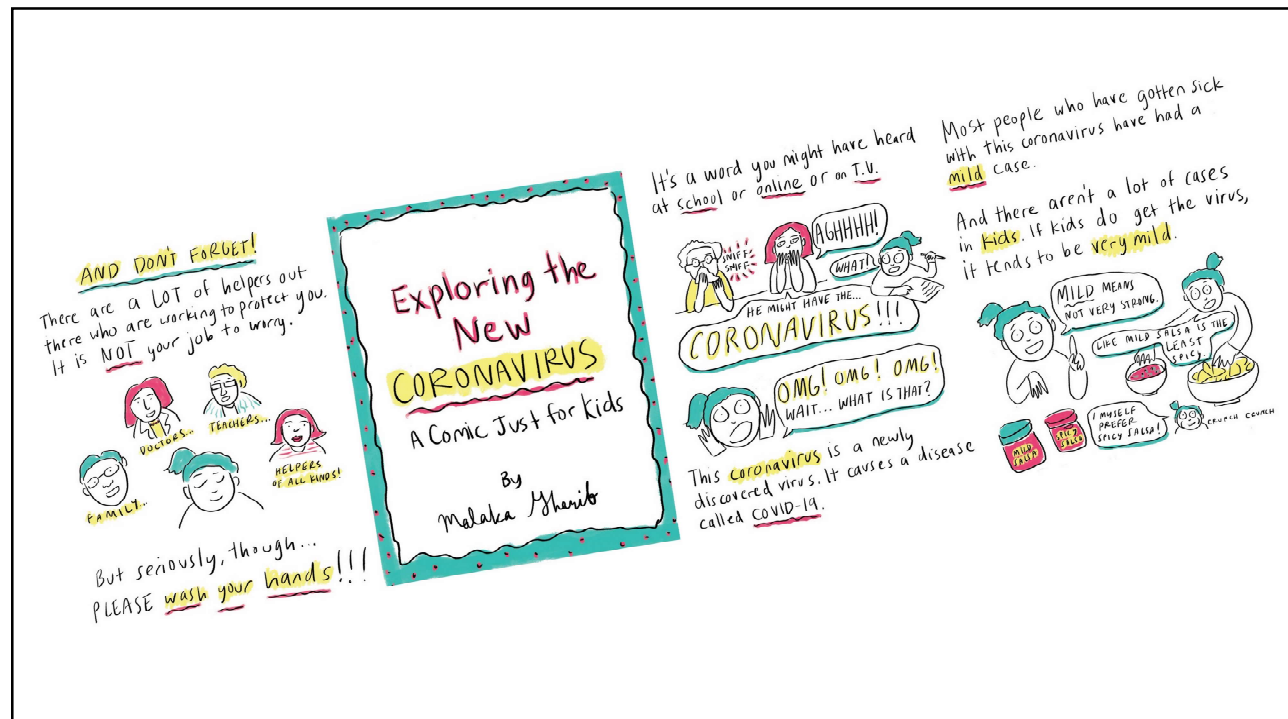 AND DON'T FORGET!
There are a LOT of helpers out
there who are working to protect you.
It is NOT your job to worry.
DOCTORS...
TEACHERS...
HELPERS
OF ALL KINDS!
FAMILY...
But seriously, though...
PLEASE wash your hands!!!
Exploring the
New
CORONAVIRUS
A Comic Just for Kids
By
Malaka Gharib
It's a word you might have heard
at school or online or on T.V.
SNIFF
SNIFF
AGHHHH!
WHAT?
HE MIGHT HAVE THE...
CORONAVIRUS!!!
OMG! OMG! OMG!
WAIT... WHAT IS THAT?
This coronavirus is a newly
discovered virus. It causes a disease
called COVID-19.
Most people who have gotten sick
with this coronavirus have had a
mild case.
And there aren't a lot of cases
in kids. If kids do get the virus,
it tends to be very mild.
MILD MEANS
NOT VERY STRONG.
LIKE MILD SALSA IS THE
LEAST
SPICY
MILD
SALSA
SPICY
SALSA
I MYSELF
PREFER
SPICY SALSA!
CRUNCH CRUNCH